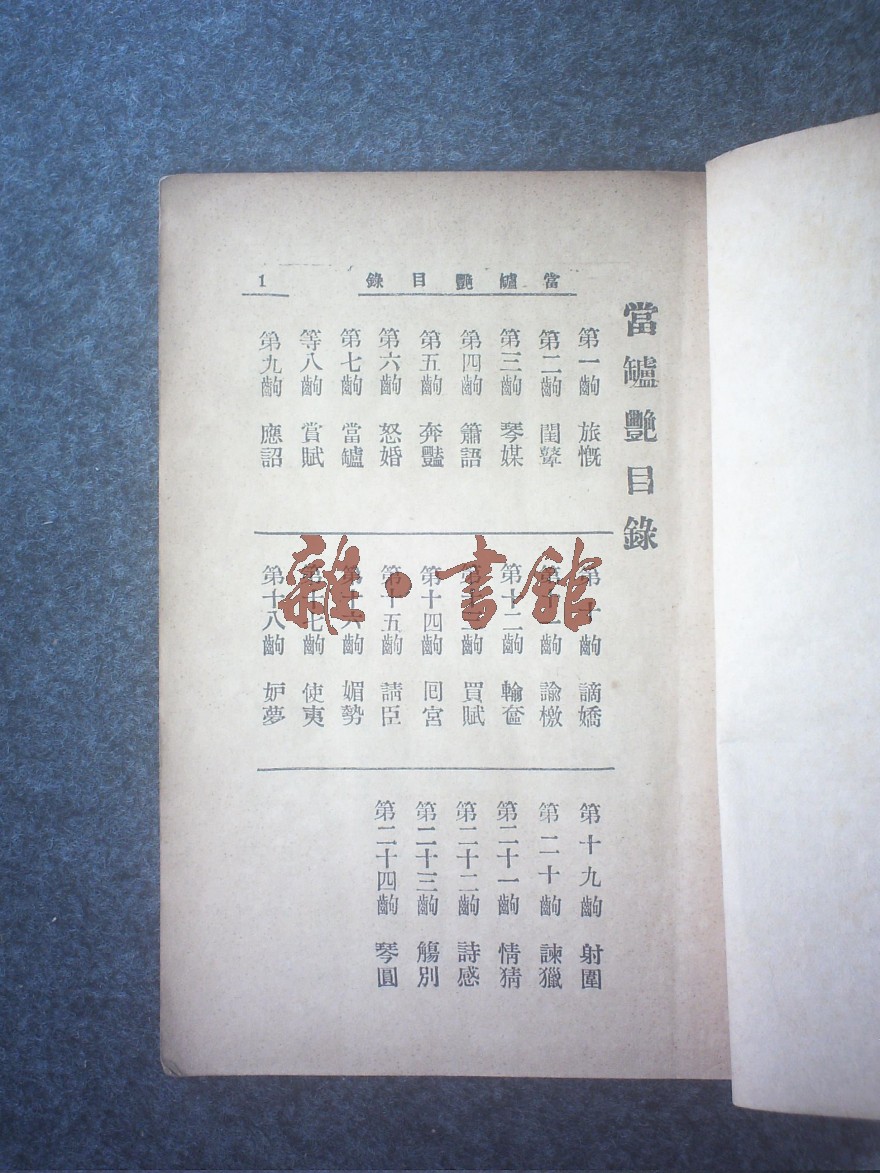 當罏艷目錄
當罏艷目錄
1
第一齣 旅慨
第二齣 閨
第三齣 琴媒
第四齣 簫語
第五齣 奔豔
第六齣 怒婚
第七齣 當罏
等八齣 賞賦
第九齣 應詔
第十齣 謫嬌
第十一齣 諭檄
第十二齣 輸奩
第十三齣 買賦
第十四齣 囘宮
第十五齣 請臣
第十六齣 媚勢
第十七齣 使夷
第十八齣 妒夢
第十九齣 射圍
第二十齣 諫獵
第二十一齣 情猜
第二十二齣 詩感
第二十三齣 觴別
第二十四齣 琴圓
雜·書館